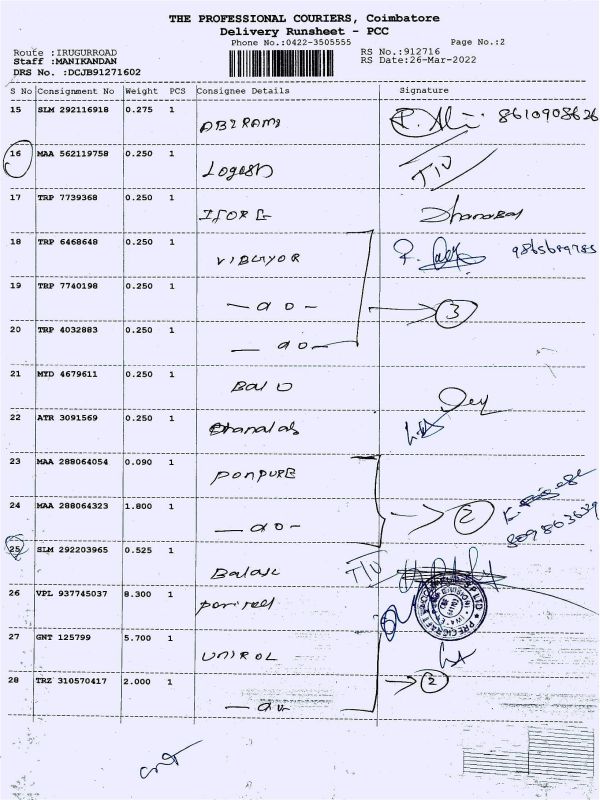 THE PROFESSIONAL COURIERS, Coimbatore
Delivery Runsheet - PCC
Phone No.:0422-3505555 Page No.:2
Route :IRUGURROAD RS No.:912716
Staff :MANIKANDAN RS Date:26-Mar-2022
DRS No. :DCJB91271602
S No Consignment No Weight PCS Consignee Details Signature
15 SLM 292116918 0.275 1
ABIRAMI 8610908626
16 MAA 562119758 0.250 1
Logesh TIV
17 TRP 7739368 0.250 1
ISORE Dhanabal
18 TRP 6468648 0.250 1
VIBGYOR
19 TRP 7740198 0.250 1
— do — 3
20 TRP 4032883 0.250 1
— do —
21 MYD 4679611 0.250 1
22 ATR 3091569 0.250 1
23 MAA 288064054 0.090 1
PONPURE
24 MAA 288064323 1.800 1
— do — 2
25 SLM 292203965 0.525 1
TIV
26 VPL 937745037 8.300 1
27 GNT 125799 5.700 1
UNIROL
28 TRZ 310570417 2.000 1
2